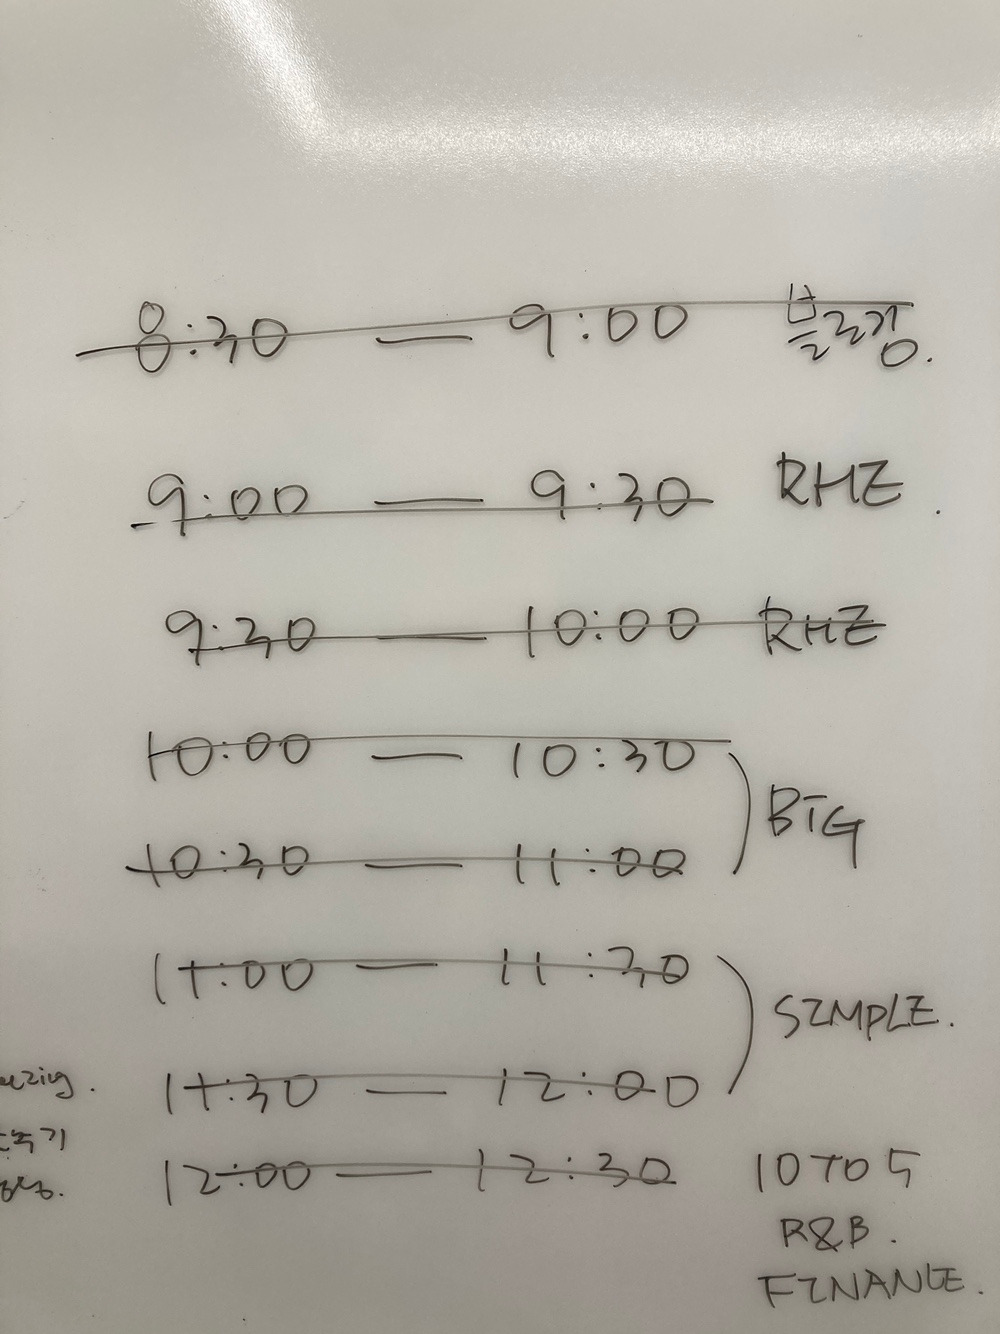 8:30 — 9:00 블로깅.
9:00 — 9:30 RHE.
9:30 — 10:00 RHE
10:00 — 10:30
BIG
10:30 — 11:00
11:00 — 11:30
SIMPLE.
11:30 — 12:00
12:00 — 12:30 10 TO 5
R&B.
FINANCE.